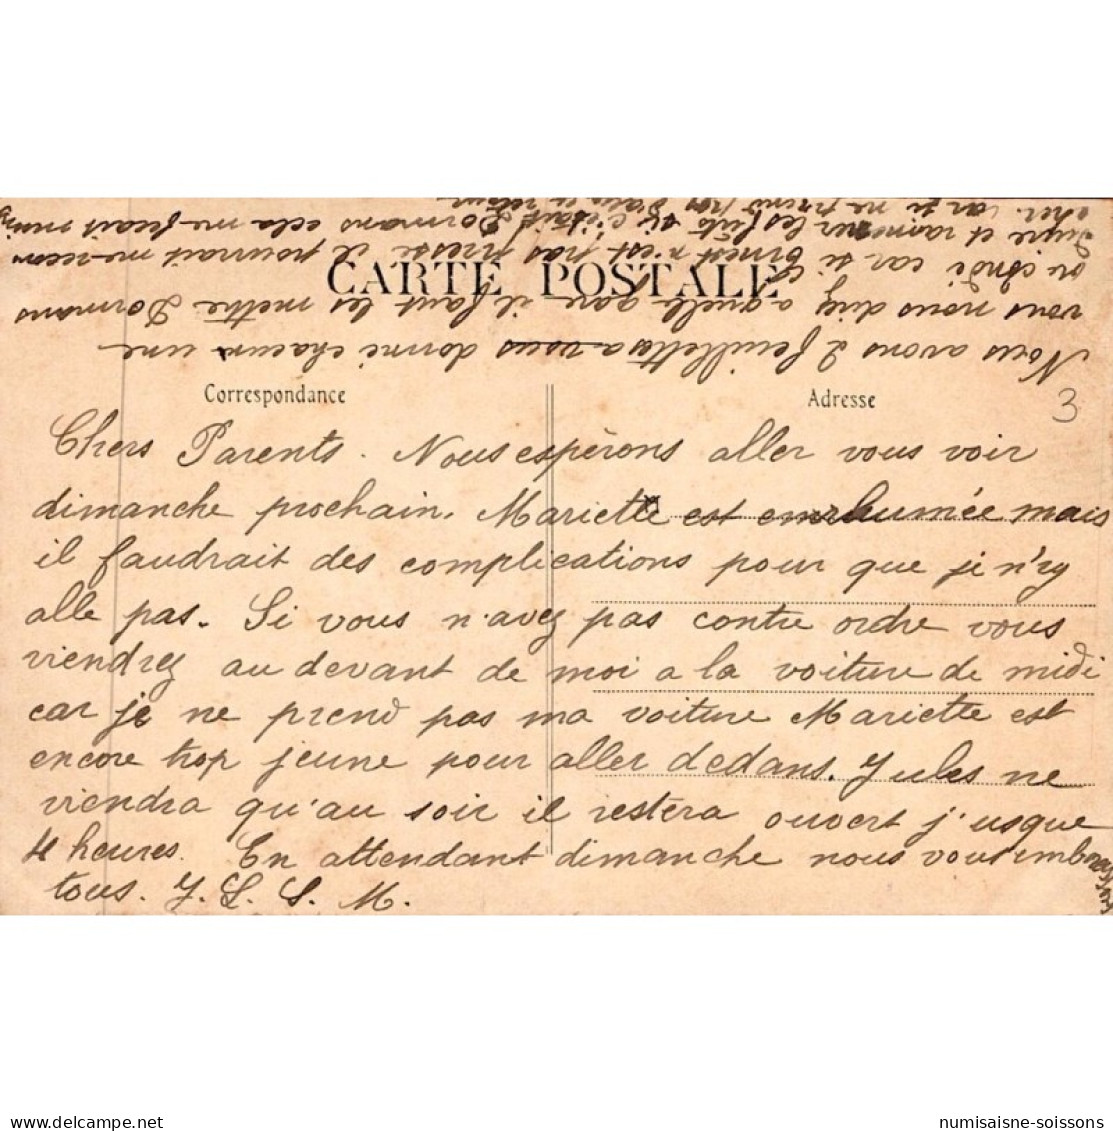 CARTE POSTALE
Correspondance
Adresse
3
Chers Parents. Nous espèrons aller vous voir
dimanche prochain. Mariette est emrhumée mais
il faudrait des complications pour que je n'y
alle pas. Si vous n'avez pas contre ordre vous
viendrez au devant de moi a la voiture de midi
car je ne prend pas ma voiture Mariette est
encore trop jeune pour aller dedans. Jules ne
viendra qu'au soir il restera ouvert j'usque
4 heures. En attendant dimanche nous vous embrassons
tous. J. L. S. M.
Nous avons 2 feuillettes a vous donné chacun une
vous nous direz a quelle gare il faut les mettre Dormans
ou Condé car si Ernest n'est pas pressé il pourrait me
et ramener les fûts si c'était Dormans cela me ferait
cher car je ne prend pas
numisaisne-soissons
delcampe.net